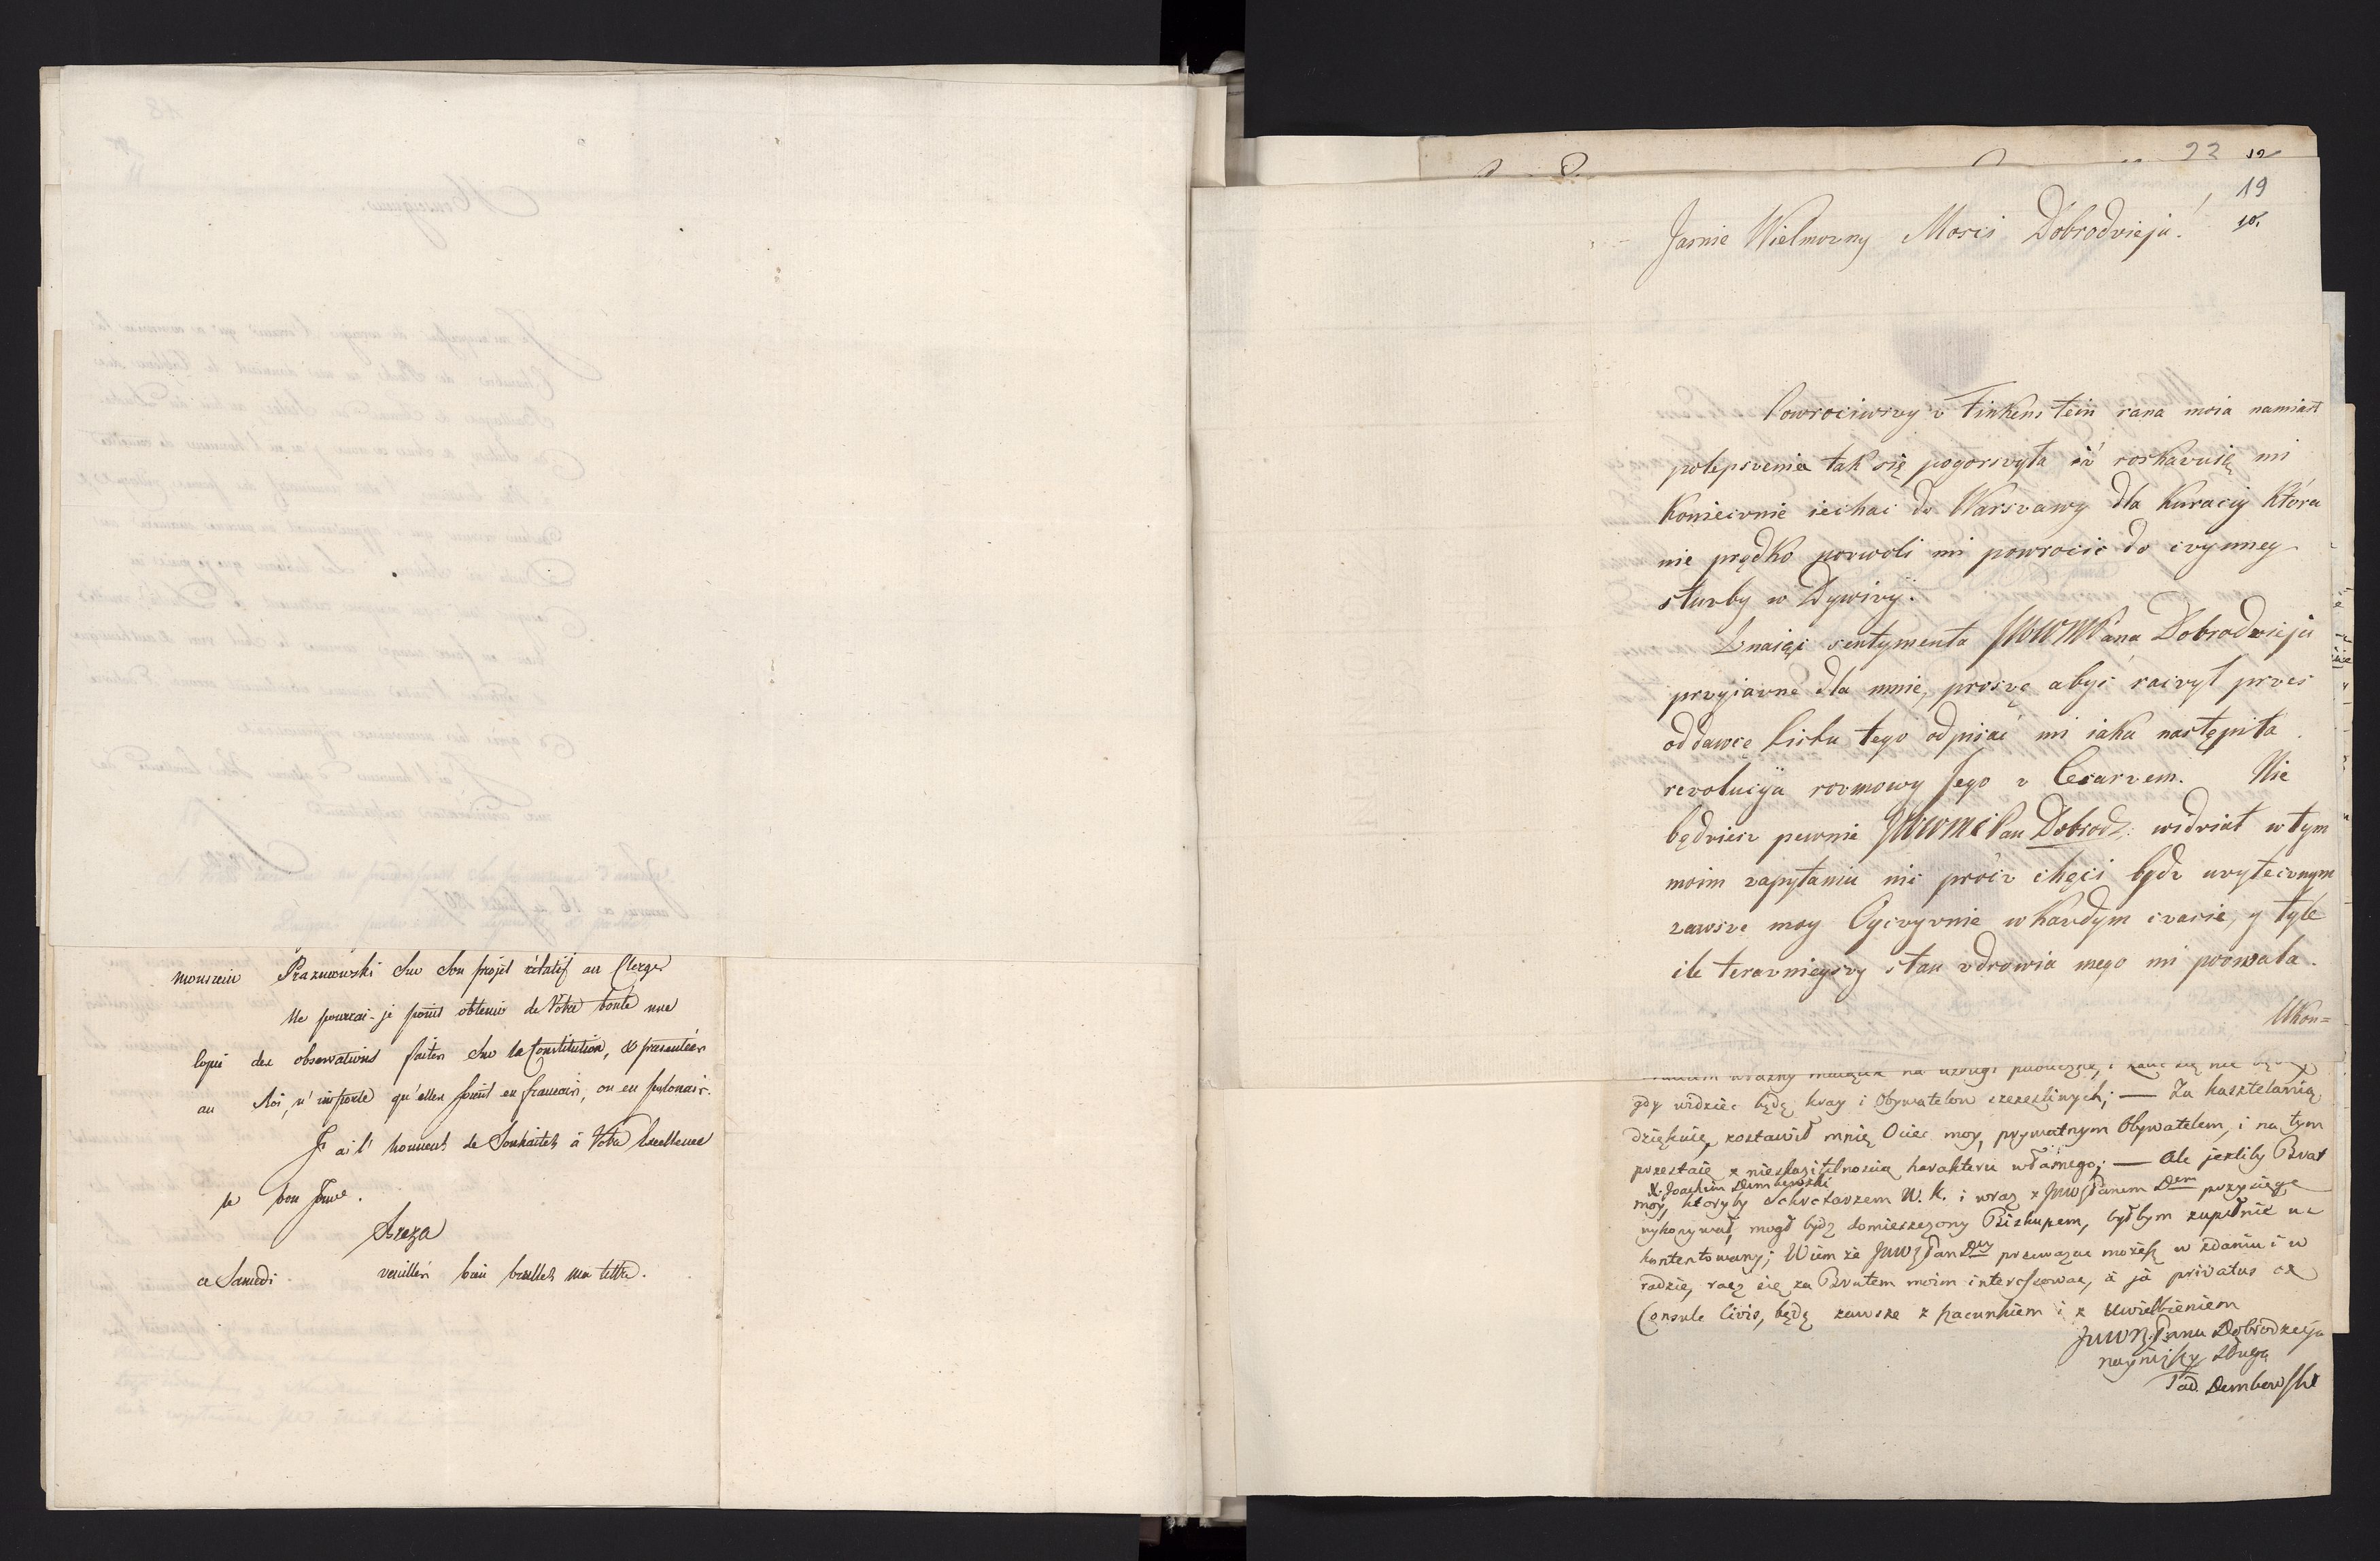 monsieur Prazmowski sur son projet rélatif au Clergé
Ne pourrai-je point obtenir de Votre bonté une
copie des observations faites sur la Constitution, & presentées
au Roi, n'importe qu'elles soient en francais, ou en polonais.
J'ai l'honneur de Souhaiter à Votre Excellence
le bon jour.
Breza
ce Samedi veuillés bien bruller ma lettre.
22 12
19
10.
Jasnie Wielmozny Mosci Dobrodzieju!
Powrociwszy z Finkenstein rana moia namiast
polepszenia tak się pogorszyła iż roskazuią mi
koniecznie iechać do Warszawy dla kuracij która
nie prędko pozwoli mi powrocić do czynney
służby w Dywizij.
Znaiąc sentymenta JWWMPana Dobrodzieju
przyiazne dla mnie, proszę abyś raczył przes
oddawcę listu tego odpisać mi iaka nastąpiła
rezolucija rozmowy Jego z Cesarzem. Nie
będziesz pewnie JWWMC Pan Dobrodz: widział w tym
moim zapytaniu nic prócz chęci bydz uzytecznym
zawsze moy Oyczyznie w każdym czasie, y tyle
ile teraznieyszy stan zdrowia mego mi pozwala.
Ukon=
gdy widziec będę kray i Obywatelow szczęsliwych; — Za kasztelanią
dziękuię, zostawił mnię Ociec moy, prywatnym Obywatelem, i na tym
przestaię z nieskazitelnoscią harakteru własnego; — Ale jezliby Brat
X. Joachim Dembowski
moy, ktoryby Sekretarzem W. K. i wraz z JWW Panem Dem przysięgę
wykonywał, mogł bydz domieszczony Biskupem, byłbym zupełnie u-
kontentowany; Wiem że JWW Pan Dzy przeważać możesz w zdaniu i w
radzie, racz się za Bratem moim interessować, a ja privatus ex
Consule Civis, będę zawsze z szacunkiem i z Uwielbieniem
JWW Pana Dobrodzieja
nayniższy Sługa
Tad. Dembowski